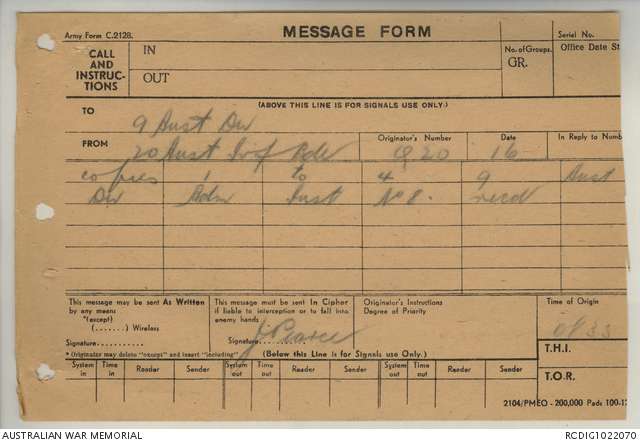 Army Form C.2128.
MESSAGE FORM
Serial No.
CALL AND INSTRUC-TIONS
IN
OUT
No. of Groups.
GR.
Office Date St
(ABOVE THIS LINE IS FOR SIGNALS USE ONLY.)
TO
9 Aust Div
FROM
20 Aust Inf Bde
Originator's Number
Q 20
Date
16
In Reply to Numb
copies 1 to 4 9 Aust
Div Adm Inst No 8. recd
This message may be sent As Written by any means
*(except)
(.......) Wireless
Signature..........
This message must be sent In Cipher if liable to interception or to fall into enemy hands.
Signature.... J Pearce
Originator's Instructions
Degree of Priority
Time of Origin
0833
* Originator may delete "except" and insert "including"
(Below this Line is for Signals use Only.)
T.H.I.
T.O.R.
System in
Time in
Reader
Sender
System out
Time out
Reader
Sender
System out
Time out
Reader
Sender
2104/PMEO - 200,000 Pads 100-12
AUSTRALIAN WAR MEMORIAL
RCDIG1022070